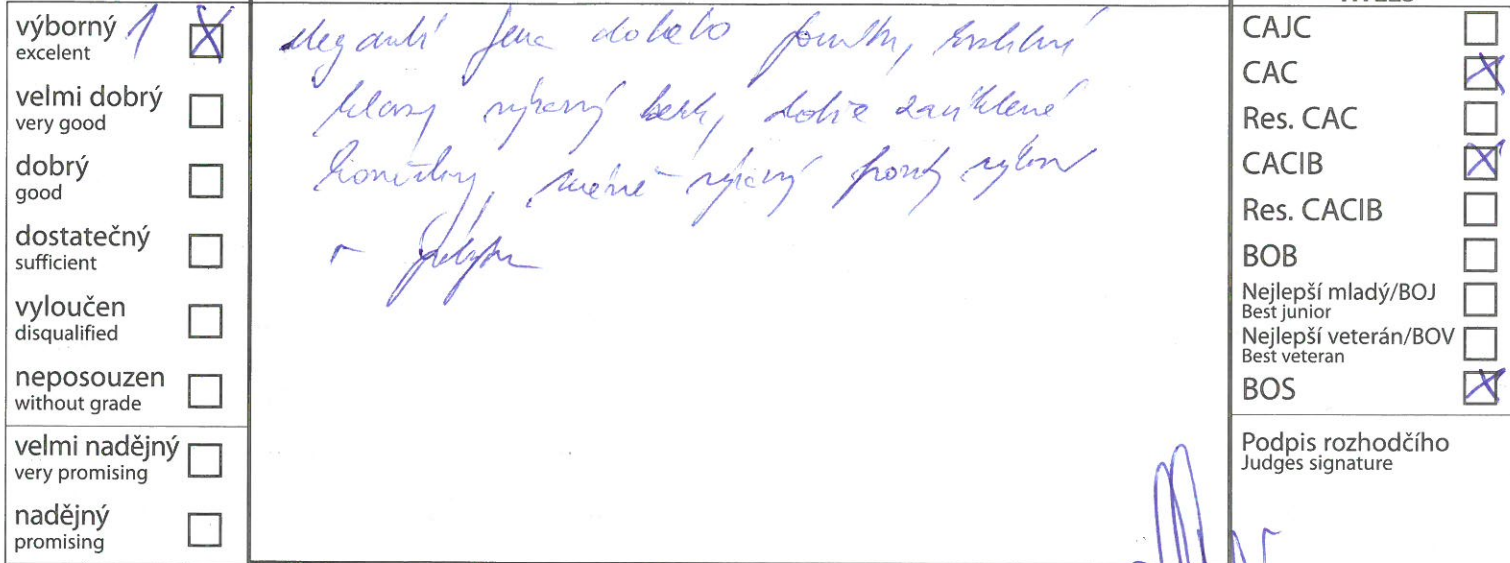 výborný 1
excelent
velmi dobrý
very good
dobrý
good
dostatečný
sufficient
vyloučen
disqualified
neposouzen
without grade
velmi nadějný
very promising
nadějný
promising
elegantní fena dobrého
výrazný krk, dobře zaúhlené
končetiny, méně výrazný
v pohybu
CAJC
CAC
Res. CAC
CACIB
Res. CACIB
BOB
Nejlepší mladý/BOJ
Best junior
Nejlepší veterán/BOV
Best veteran
BOS
Podpis rozhodčího
Judges signature